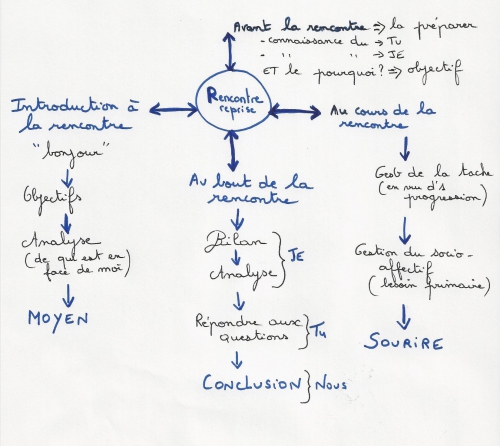 Avant la rencontre => la préparer
- connaissance du → Tu
- " " → JE
ET le pourquoi? => objectif
Rencontre
reprise
Introduction à
la rencontre
"bonjour"
Objectifs
Analyse
(de qui est en
face de moi)
MOYEN
Au bout de la
rencontre
Bilan
Analyse
JE
Répondre aux
questions
Tu
CONCLUSION
Nous
Au cours de la
rencontre
Gest° de la tache
(en vue d's
progression)
Gestion du socio-
affectif
(besoin primaire)
SOURIRE